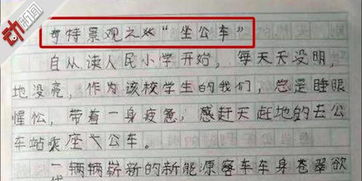 动新闻
奇特景观之“坐公车”
自从读人民小学开始，每天天没明，
地没亮，作为该校学生的我们，总是睡眼
惺松，带着一身疲惫，感赶天赶地的去公
车站乘座公车。
一辆辆崭新的新能原客车车身苍翠欲